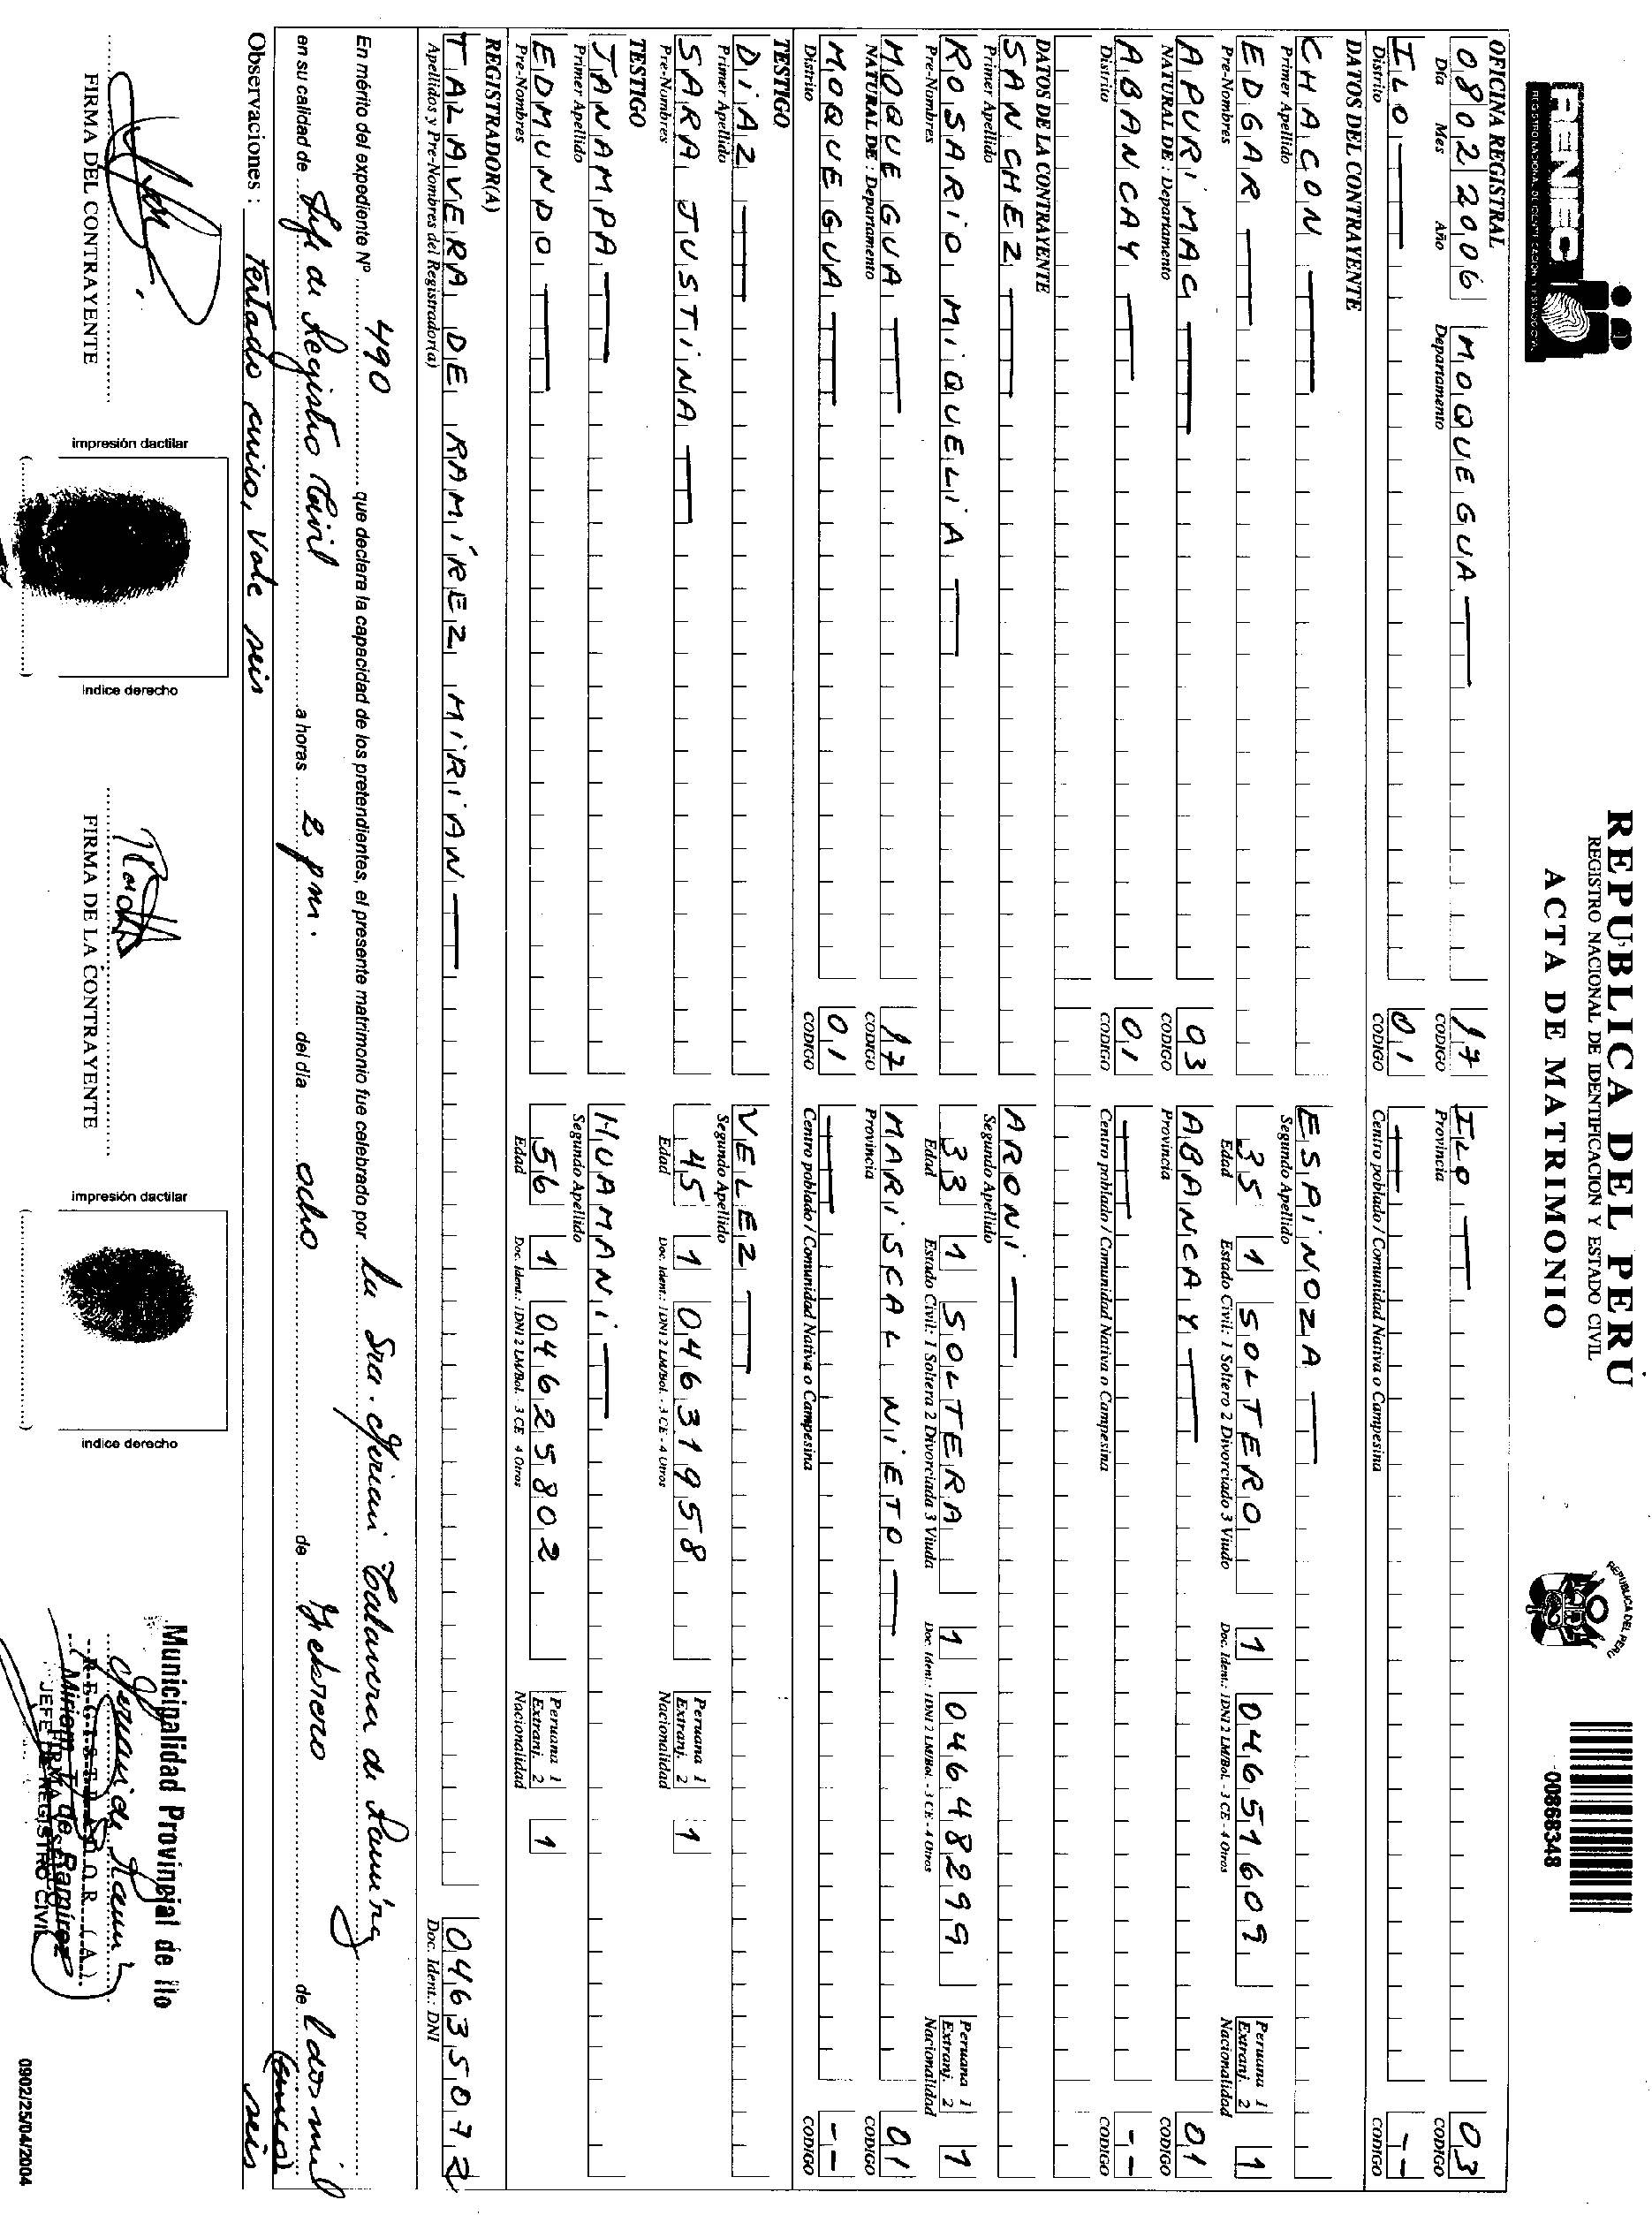 RENIEC
REGISTRO NACIONAL DE IDENTIFICACION Y ESTADO CIVIL
REPUBLICA DEL PERÚ
REGISTRO NACIONAL DE IDENTIFICACION Y ESTADO CIVIL
ACTA DE MATRIMONIO
REPUBLICA DEL PERU
00868348
OFICINA REGISTRAL
08 02 2006 MOQUEGUA 17 ILO 03
Día Mes Año Departamento CODIGO Provincia CODIGO
ILO 01 --
Distrito CODIGO Centro poblado / Comunidad Nativa o Campesina CODIGO
DATOS DEL CONTRAYENTE
CHACON ESPINOZA
Primer Apellido Segundo Apellido
EDGAR 35 1 SOLTERO 1 04651609 Peruana 1 Extranj. 2 1
Pre-Nombres Edad Estado Civil: 1 Soltero 2 Divorciado 3 Viudo Doc. Ident.: 1DNI 2 LM/Bol. - 3 CE - 4 Otros Nacionalidad
APURIMAC 03 ABANCAY 01
NATURAL DE : Departamento CODIGO Provincia CODIGO
ABANCAY 01 --
Distrito CODIGO Centro poblado / Comunidad Nativa o Campesina CODIGO
DATOS DE LA CONTRAYENTE
SANCHEZ ARONI
Primer Apellido Segundo Apellido
ROSARIO MIQUELIA 33 1 SOLTERA 1 04648299 Peruana 1 Extranj. 2 1
Pre-Nombres Edad Estado Civil: 1 Soltera 2 Divorciada 3 Viuda Doc. Ident.: 1DNI 2 LM/Bol. - 3 CE - 4 Otros Nacionalidad
MOQUEGUA 17 MARISCAL NIETO 01
NATURAL DE : Departamento CODIGO Provincia CODIGO
MOQUEGUA 01 --
Distrito CODIGO Centro poblado / Comunidad Nativa o Campesina CODIGO
TESTIGO
DIAZ VELEZ
Primer Apellido Segundo Apellido
SARA JUSTINA 45 1 04631958 Peruana 1 Extranj. 2 1
Pre-Nombres Edad Doc. Ident.: 1DNI 2 LM/Bol. - 3 CE - 4 Otros Nacionalidad
TESTIGO
JANAMPA HUAMANI
Primer Apellido Segundo Apellido
EDMUNDO 56 1 04625802 Peruana 1 Extranj. 2 1
Pre-Nombres Edad Doc. Ident.: 1DNI 2 LM/Bol. 3 CE 4 Otros Nacionalidad
REGISTRADOR(A)
TALAVERA DE RAMÍREZ MIRIAN 04635072
Apellidos y Pre-Nombres del Registrador(a) Doc. Ident.: DNI
En mérito del expediente Nº 490 que declara la capacidad de los pretendientes, el presente matrimonio fue celebrado por La Sra. Miriam Talavera de Ramírez
en su calidad de Jefe de Registro Civil a horas 2 pm. del día ocho de Febrero de dos mil (cinco) seis
Observaciones : Testado cinco, Vale seis
FIRMA DEL CONTRAYENTE
impresión dactilar
indice derecho
FIRMA DE LA CONTRAYENTE
impresión dactilar
indice derecho
Municipalidad Provincial de Ilo
REGISTRADOR (A)
Miriam T. de Ramírez
JEFE DE REGISTRO CIVIL
0902/25/04/2004